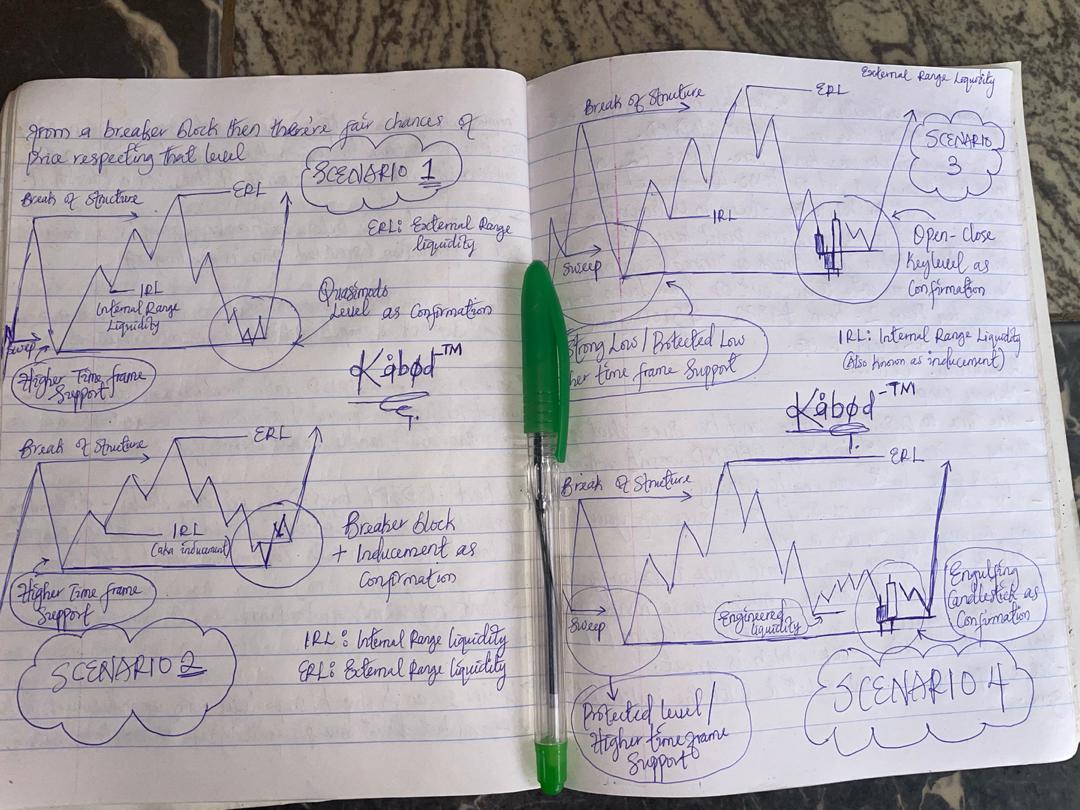 From a breaker block then there're fair chances of
price respecting that level
SCENARIO 1
Break of Structure
ERL
ERL: External Range
liquidity
IRL
Internal Range
Liquidity
Quasimodo
Level as Confirmation
Sweep
Higher Time frame
Support
Kåbød-TM
T.
Break of Structure
ERL
IRL
(aka inducement)
Breaker block
+ Inducement as
Confirmation
Higher Time frame
Support
IRL: Internal Range liquidity
ERL: External Range liquidity
SCENARIO 2
External Range Liquidity
Break of Structure
ERL
SCENARIO
3
IRL
Sweep
Open-Close
Keylevel as
Confirmation
Strong Low / Protected Low
time frame Support
IRL: Internal Range Liquidity
(Also known as inducement)
Kåbød-TM
T.
Break of Structure
ERL
Sweep
Engineered
liquidity
Engulfing
Candlestick as
Confirmation
Protected level /
Higher time frame
Support
SCENARIO 4